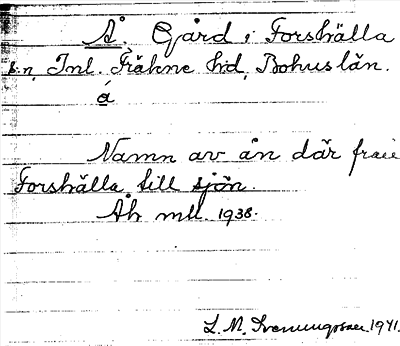 Å. Gård i Forshälla
s:n, Inl. Fräkne hd, Bohuslän.
å
Namn av ån där från
Forshälla till sjön.
Åh mll. 1938.
L. M. Svenungsson 1941.